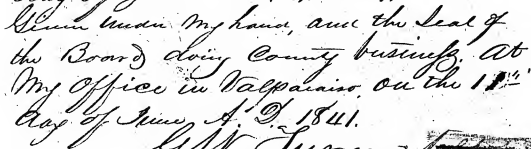 Given under my hand, and the Seal of
the Board doing County business. At
My office in Valparaiso, on the 11th
day of June, A. D. 1841.